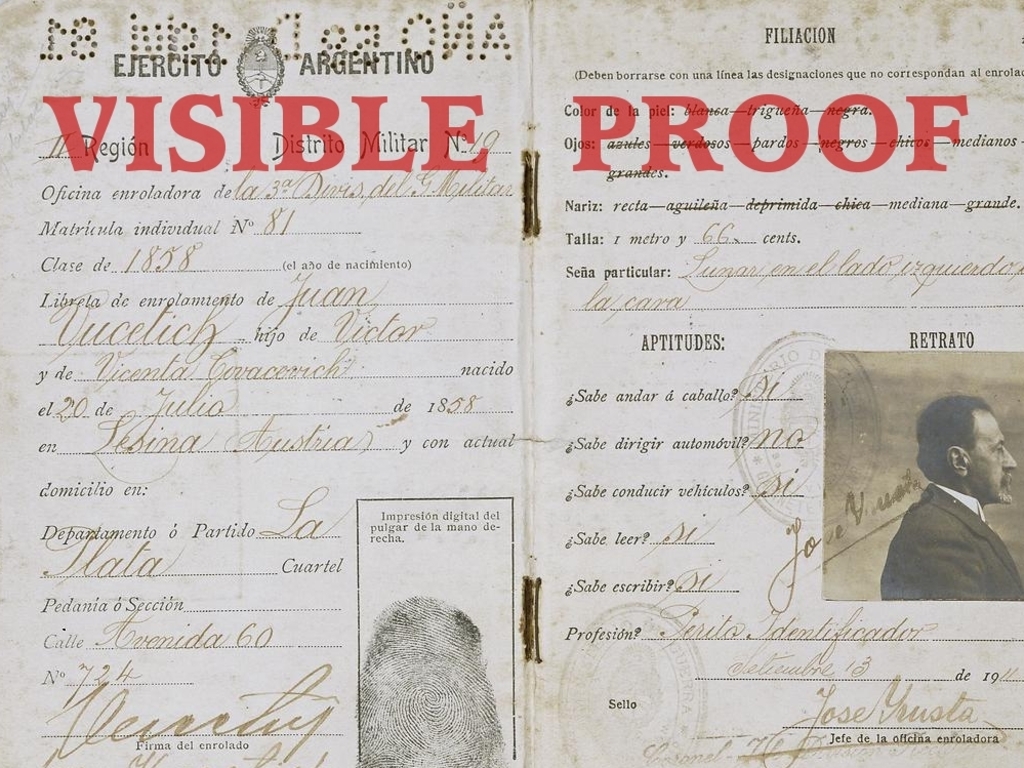 EJERCITO ARGENTINO
VISIBLE PROOF
II Región Distrito Militar Nº 19
Oficina enroladora de la 3ª Divis. del G. Militar
Matrícula individual Nº 81
Clase de 1858 (el año de nacimiento)
Libreta de enrolamiento de Juan
Vucetich hijo de Victor
y de Vicenta Covacevich nacido
el 20 de Julio de 1858
en Lesina (Austria) y con actual
domicilio en:
Departamento ó Partido La
Plata Cuartel
Pedanía ó Sección
Calle Avenida 60
Nº 724
Firma del enrolado
Impresión digital del
pulgar de la mano de-
recha.
FILIACION
(Deben borrarse con una línea las designaciones que no correspondan al
Color de la piel: blanca—trigueña—negra.
Ojos: azules—verdosos—pardos—negros—chicos—medianos—
grandes.
Nariz: recta—aguileña—deprimida—chica—mediana—grande.
Talla: 1 metro y 66 cents.
Seña particular: Lunar en el lado izquierdo
la cara
APTITUDES:
RETRATO
¿Sabe andar á caballo? si
¿Sabe dirigir automóvil? no
¿Sabe conducir vehículos? si
¿Sabe leer? si
¿Sabe escribir? si
Profesión? Perito Identificador
Setiembre 13 de 1911
Sello
Jefe de la oficina enroladora